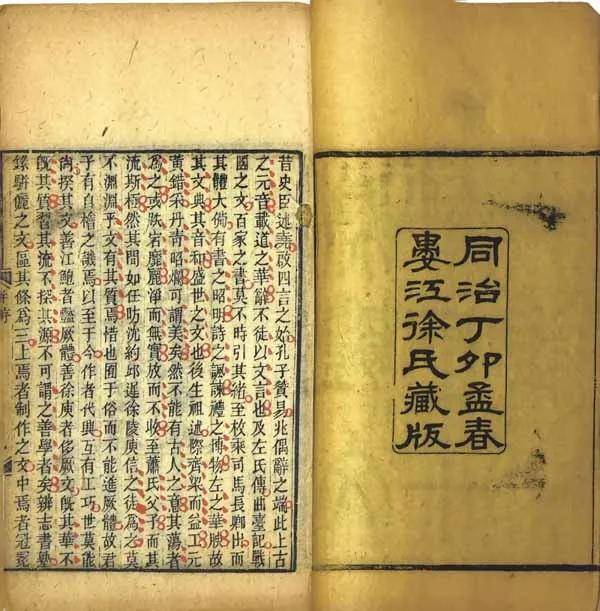 同治丁卯孟春
婁江徐氏藏版
昔史臣述堯啟四言之始孔子贊易兆偶辭之端此上古
之元音載道之華辭不徒以文言也及左氏傳曲臺記戰
國之文百家之書莫不時引其緒至枚乘司馬長卿出而
其體大備有書之昭明詩之諷諫禮之博物左之華腴故
其文典其音和盛世之文也後生祖述際齊梁而益工元
黃錯采丹青昭爛可謂美矣然不能有古人之意其蕩者
為之或跌宕靡麗浮而無實放而不收至蕭氏父子而其
流斯極然其間如任昉沈約邱遲徐陵庾信之徒為之莫
不淵淵乎文有其質焉惜也囿于俗而不能進厥體故君
子有自檜之譏焉以至于今作者代興互有工巧世莫能
尚揆其文善江鮑者豔厥體善徐庾者侈厥文旣其華不
旣其質習其流不探其源不可謂之善學者矣辨志書塾
錄駢儷之文區其條為三上焉者制作之文中焉者冠冕